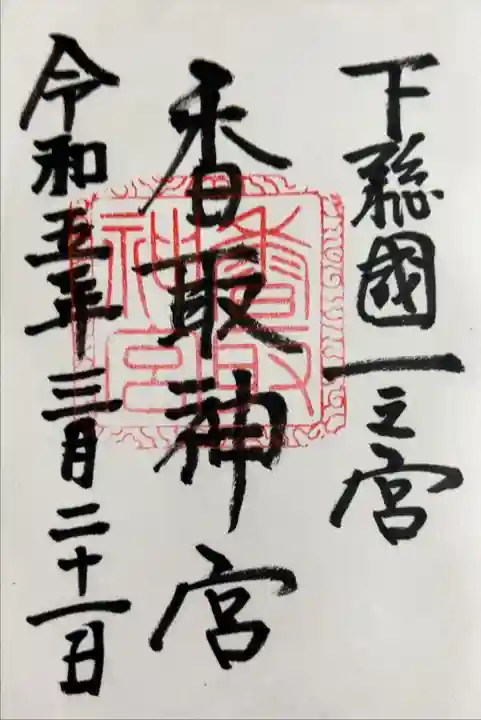 下総國一之宮
香取神宮
香取神宮
令和五年三月二十一日